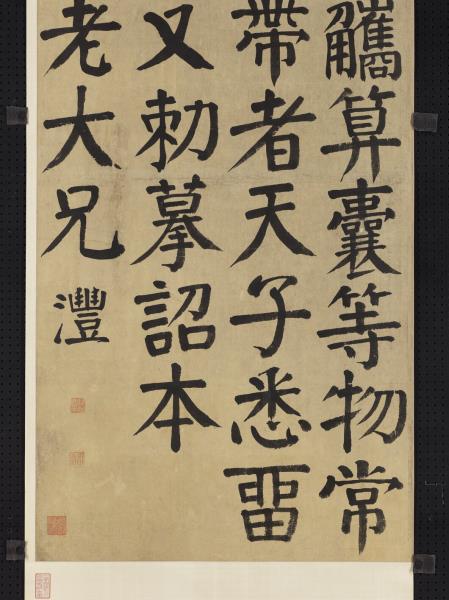 觿算囊等物常
帶者天子悉畱
又勅摹詔本
老大兄
灃